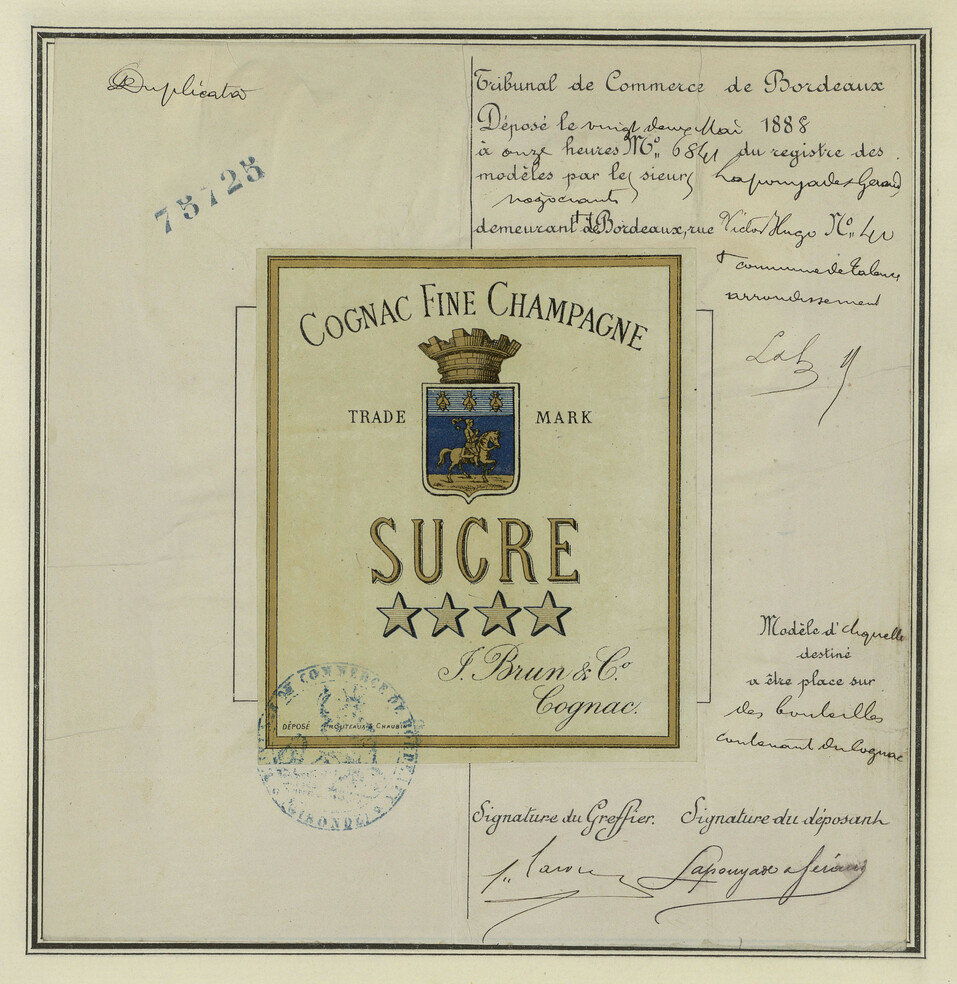 Duplicata
75725
Tribunal de Commerce de Bordeaux
Déposé le vingt deux Mai 1888
à onze heures No. 6841 du registre des
modèles par les sieurs Lapouyade & Geraud
négociants
demeurant à Bordeaux, rue Victor Hugo No. 40
& commune de Talence
arrondissement
COGNAC FINE CHAMPAGNE
TRADE MARK
SUCRE
J. Brun & Co.
Cognac.
DÉPOSÉ PROUTEAUX & CHAUBIN
COMMERCE DE
GIRONDE
Modèle d'étiquette
destiné
a être place sur
des bouteilles
contenant du Cognac
Signature du Greffier. Signature du déposant
Lapouyade &